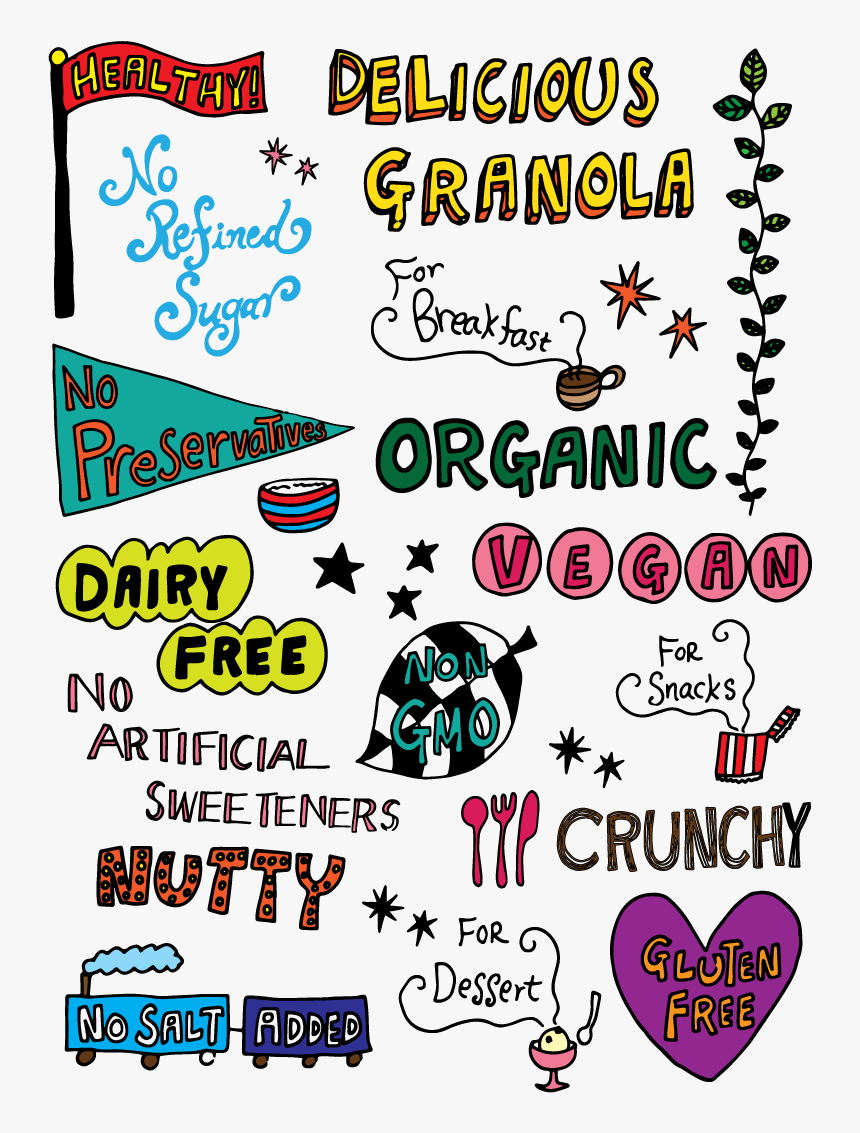 HEALTHY!
DELICIOUS
GRANOLA
No
Refined
Sugar
For
Breakfast
No
PreServaTives
ORGANIC
DAIRY
FREE
VEGAN
NON
GMO
FOR
Snacks
NO
ARTIFICIAL
SWEETENERS
CRUNCHY
NUTTY
FOR
DesserT
GLUTEN
FREE
NO SALT ADDED